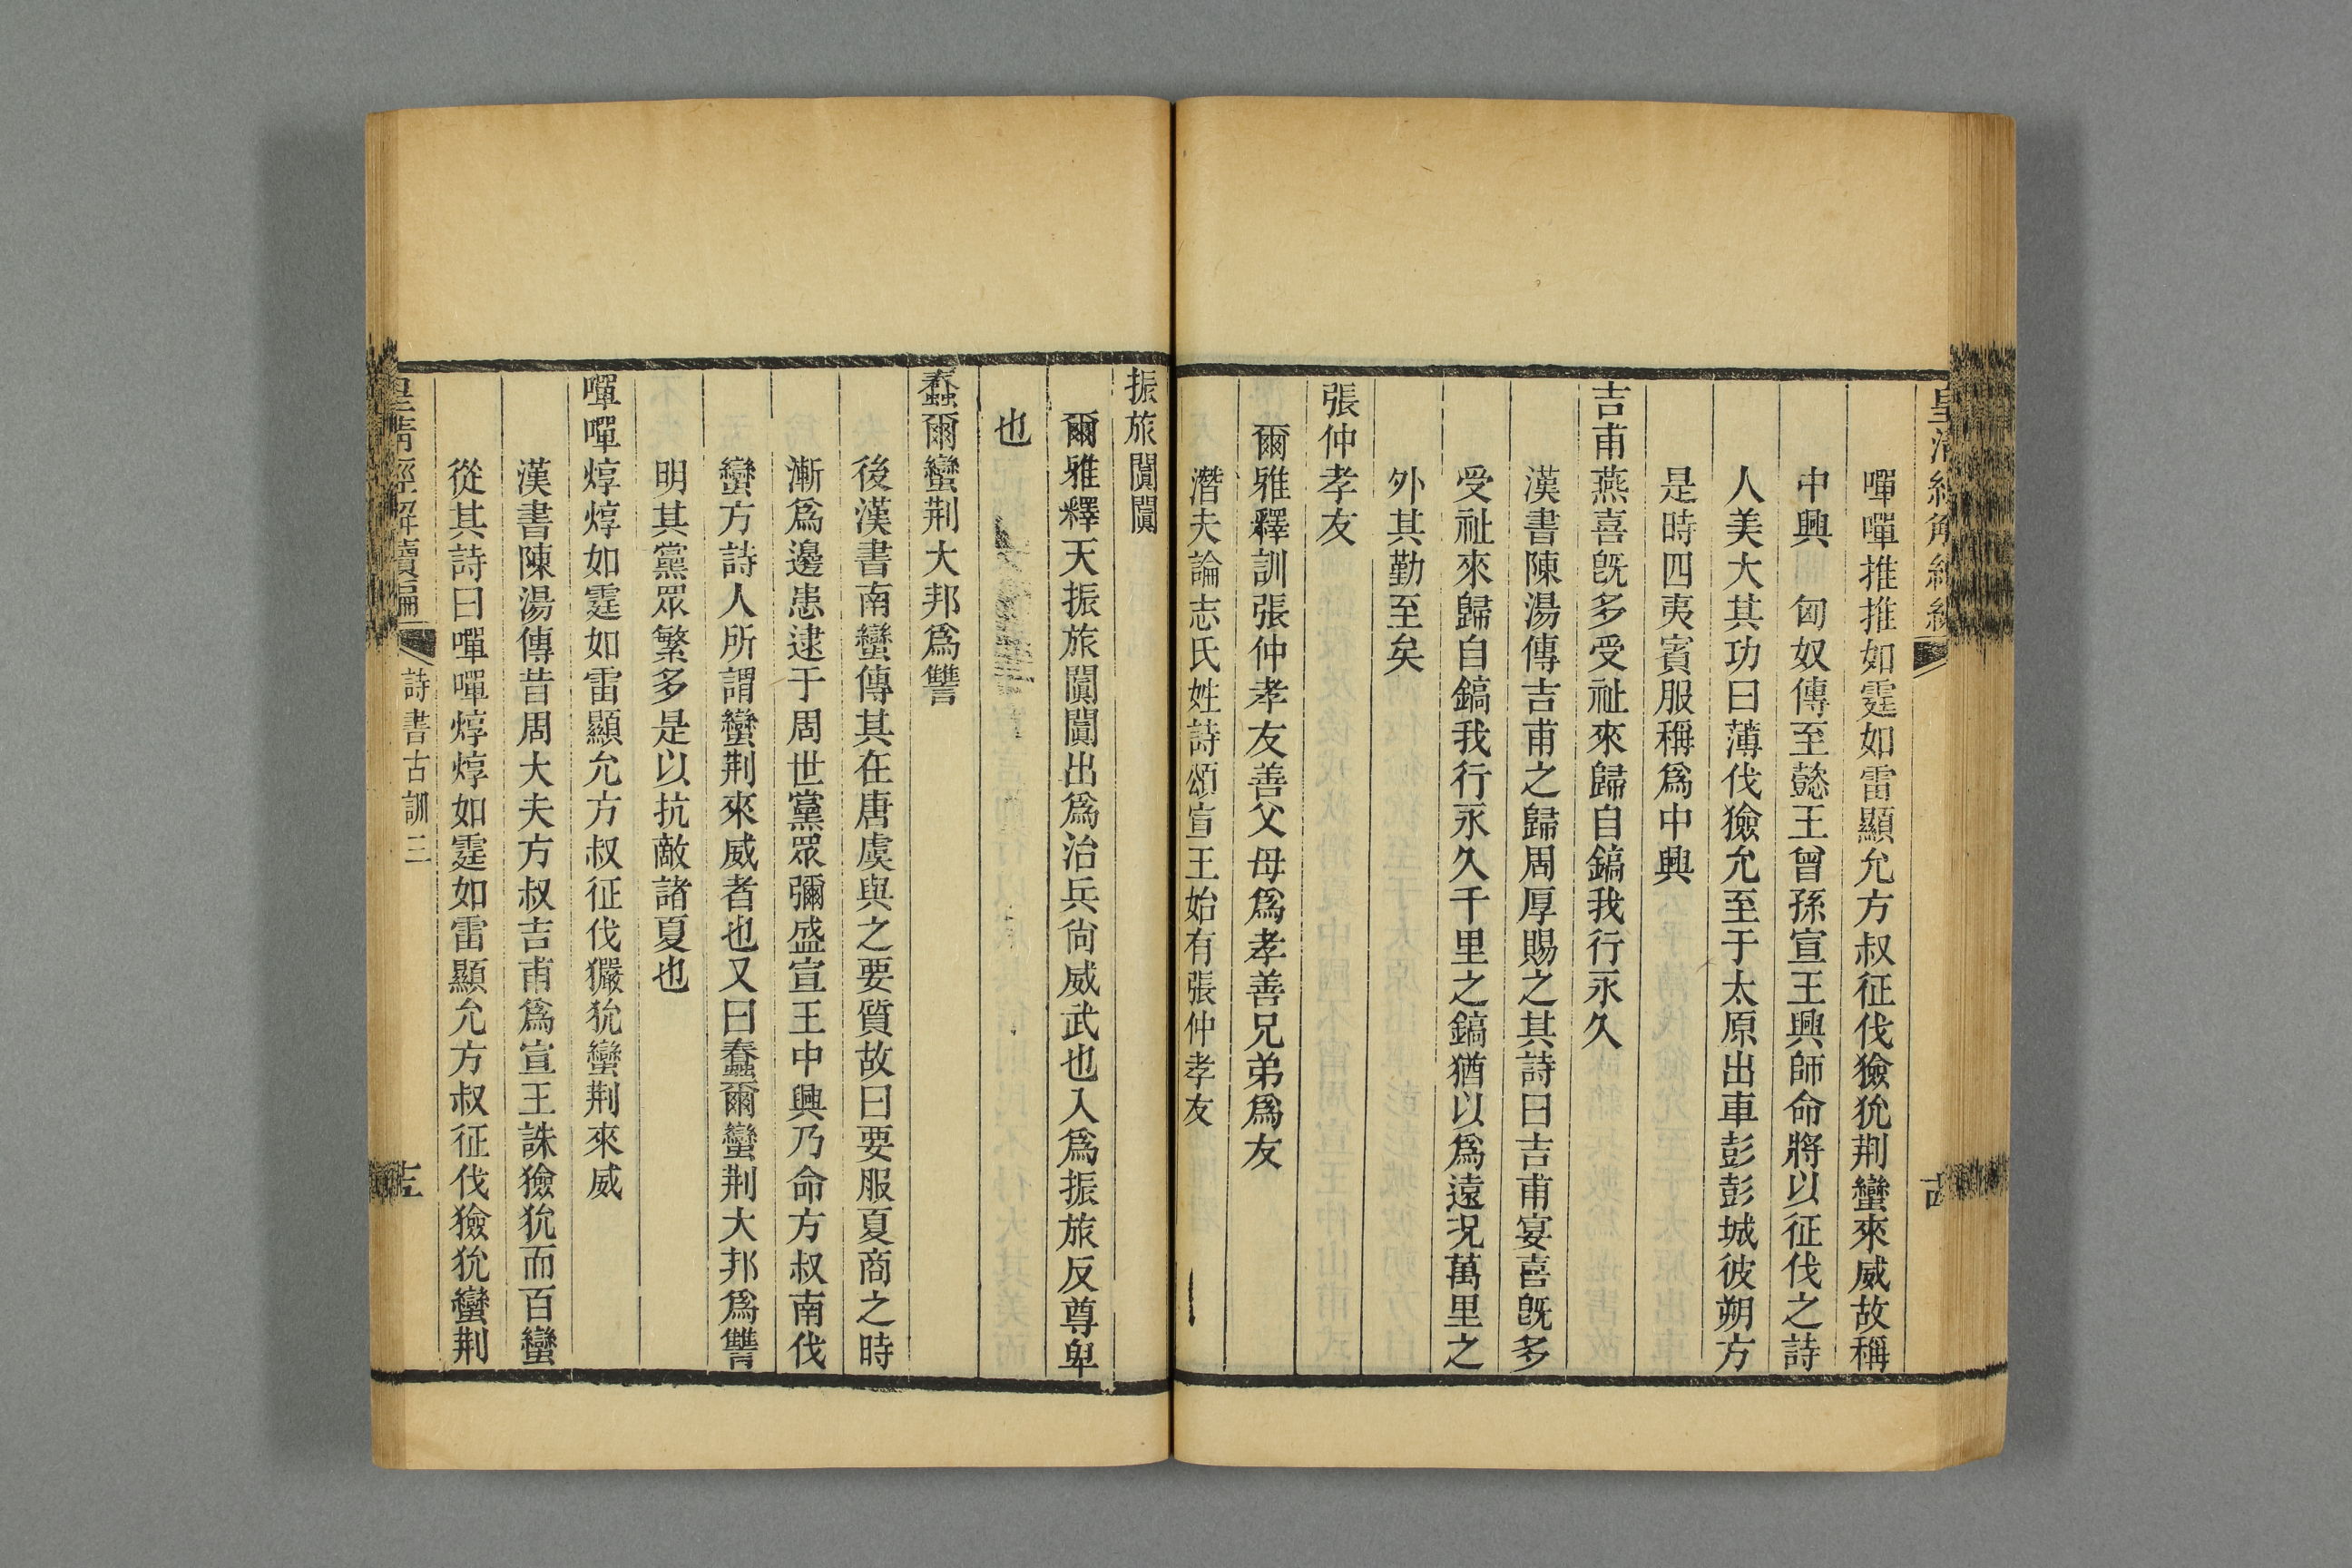 嘽嘽推推如霆如雷顯允方叔征伐獫狁荆蠻來威故稱
中興　匈奴傳至懿王曾孫宣王興師命將以征伐之詩
人美大其功曰薄伐獫允至于太原出車彭彭城彼朔方
是時四夷賓服稱爲中興
吉甫燕喜旣多受祉來歸自鎬我行永久
漢書陳湯傳吉甫之歸周厚賜之其詩曰吉甫宴喜旣多
受祉來歸自鎬我行永久千里之鎬猶以爲遠況萬里之
外其勤至矣
張仲孝友
爾雅釋訓張仲孝友善父母爲孝善兄弟爲友
潛夫論志氏姓詩頌宣王始有張仲孝友
振旅闐闐
爾雅釋天振旅闐闐出爲治兵尙威武也入爲振旅反尊卑
也
蠢爾蠻荆大邦爲讐
後漢書南蠻傳其在唐虞與之要質故曰要服夏商之時
漸爲邊患逮于周世黨眾彌盛宣王中興乃命方叔南伐
蠻方詩人所謂蠻荆來威者也又曰蠢爾蠻荆大邦爲讐
明其黨眾繁多是以抗敵諸夏也
嘽嘽焞焞如霆如雷顯允方叔征伐玁狁蠻荆來威
漢書陳湯傳昔周大夫方叔吉甫爲宣王誅獫狁而百蠻
從其詩曰嘽嘽焞焞如霆如雷顯允方叔征伐獫狁蠻荆
皇清經解續編
詩書古訓三